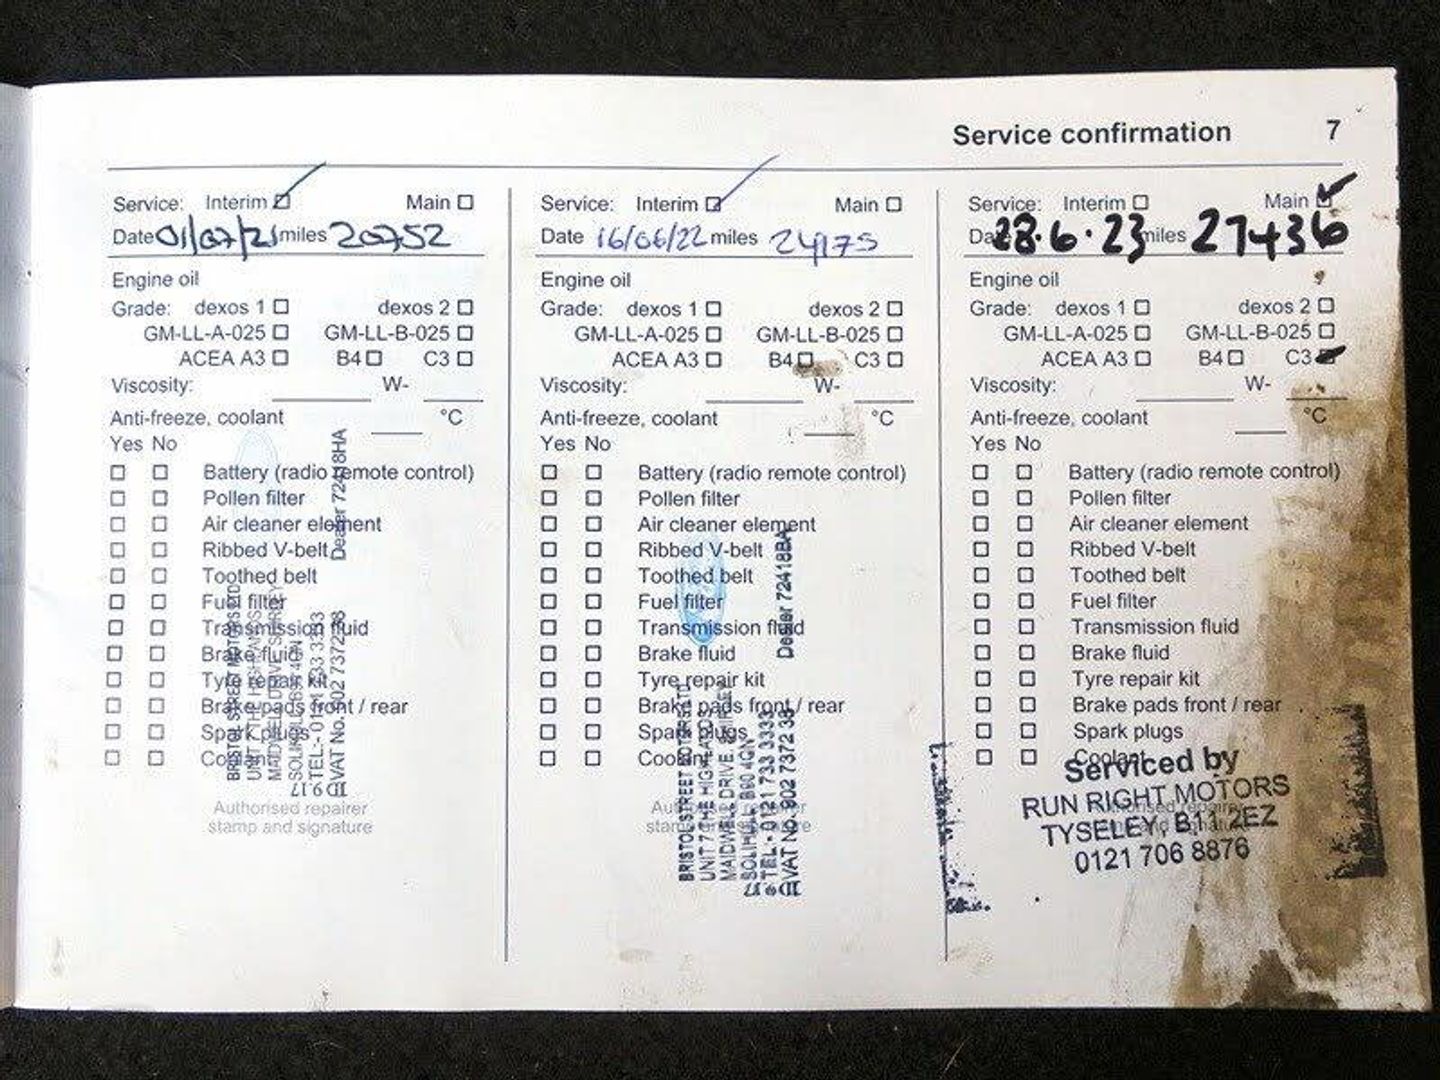 Service confirmation 7
Service: Interim Main
Date 01/07/21 miles 20752
Engine oil
Grade: dexos 1 dexos 2
GM-LL-A-025 GM-LL-B-025
ACEA A3 B4 C3
Viscosity: W-
Anti-freeze, coolant °C
Yes No
Battery (radio remote control)
Pollen filter
Air cleaner element
Ribbed V-belt
Toothed belt
Fuel filter
Transmission fluid
Brake fluid
Tyre repair kit
Brake pads front / rear
Spark plugs
Coolant
Authorised repairer
stamp and signature
BRISTOL STREET MOTORS LTD
UNIT 7 THE HIGHLANDS
MAIDWELL DRIVE SHIRLEY
SOLIHULL B90 4QN
TEL:- 0121 733 3333
VAT No. 902 7372 38
Dealer 72418HA
Service: Interim Main
Date 16/06/22 miles 24175
Engine oil
Grade: dexos 1 dexos 2
GM-LL-A-025 GM-LL-B-025
ACEA A3 B4 C3
Viscosity: W-
Anti-freeze, coolant °C
Yes No
Battery (radio remote control)
Pollen filter
Air cleaner element
Ribbed V-belt
Toothed belt
Fuel filter
Transmission fluid
Brake fluid
Tyre repair kit
Brake pads front / rear
Spark plugs
Coolant
BRISTOL STREET MOTORS LTD
UNIT 7 THE HIGHLANDS
MAIDWELL DRIVE SHIRLEY
SOLIHULL B90 4QN
TEL:- 0121 733 3333
VAT NO. 902 7372 38
Dealer 72418BA
Service: Interim Main
Date 28.6.23 miles 27436
Engine oil
Grade: dexos 1 dexos 2
GM-LL-A-025 GM-LL-B-025
ACEA A3 B4 C3
Viscosity: W-
Anti-freeze, coolant °C
Yes No
Battery (radio remote control)
Pollen filter
Air cleaner element
Ribbed V-belt
Toothed belt
Fuel filter
Transmission fluid
Brake fluid
Tyre repair kit
Brake pads front / rear
Spark plugs
Coolant
Serviced by
RUN RIGHT MOTORS
TYSELEY, B11 2EZ
0121 706 8876